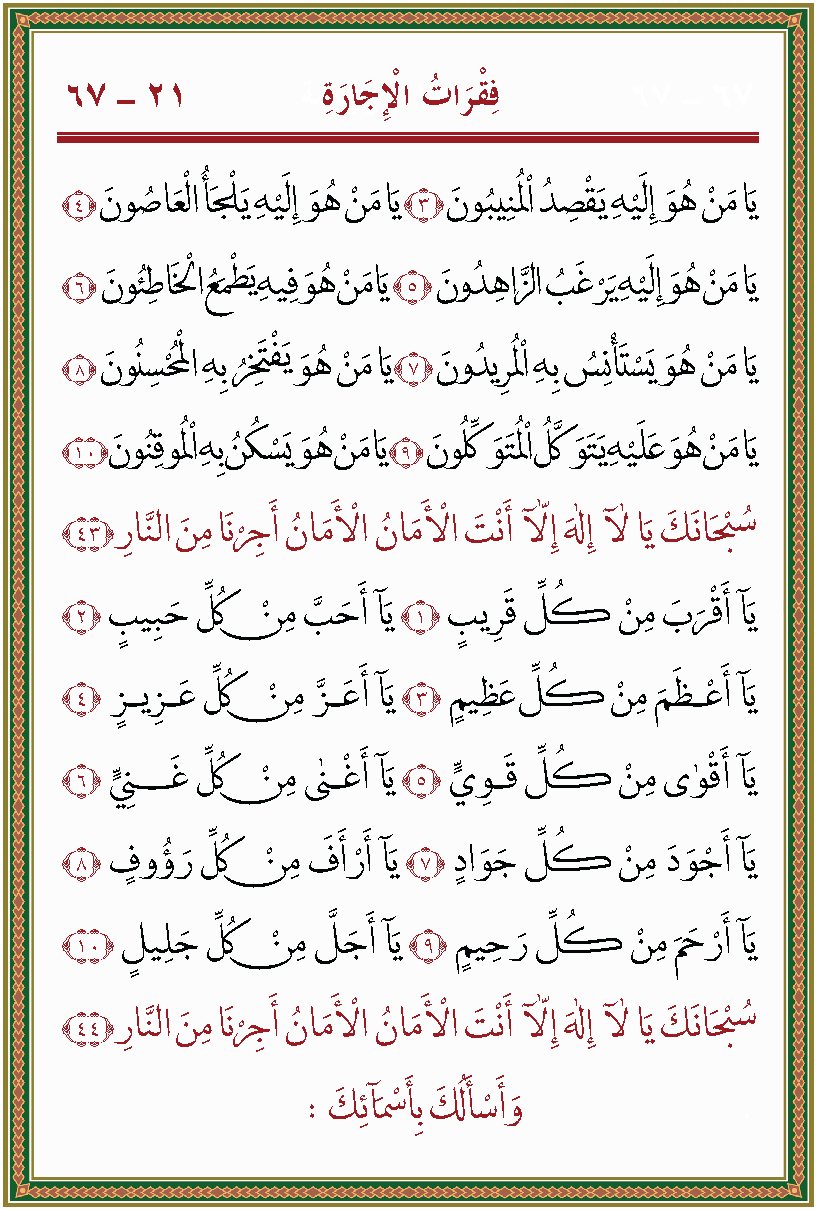 فِقْرَاتُ الْإِجَارَةِ ٢١ - ٦٧
يَا مَنْ هُوَ إِلَيْهِ يَقْصِدُ الْمُنِيبُونَ ﴿٣﴾ يَا مَنْ هُوَ إِلَيْهِ يَلْجَأُ الْعَاصُونَ ﴿٤﴾
يَا مَنْ هُوَ إِلَيْهِ يَرْغَبُ الزَّاهِدُونَ ﴿٥﴾ يَا مَنْ هُوَ فِيهِ يَطْمَعُ الْخَاطِئُونَ ﴿٦﴾
يَا مَنْ هُوَ يَسْتَأْنِسُ بِهِ الْمُرِيدُونَ ﴿٧﴾ يَا مَنْ هُوَ يَفْتَخِرُ بِهِ الْمُحْسِنُونَ ﴿٨﴾
يَا مَنْ هُوَ عَلَيْهِ يَتَوَكَّلُ الْمُتَوَكِّلُونَ ﴿٩﴾ يَا مَنْ هُوَ يَسْكُنُ بِهِ الْمُوقِنُونَ ﴿١٠﴾
سُبْحَانَكَ يَا لَآ إِلٰهَ إِلَّآ أَنْتَ الْأَمَانُ الْأَمَانُ أَجِرْنَا مِنَ النَّارِ ﴿٤٣﴾
يَآ أَقْرَبَ مِنْ كُلِّ قَرِيبٍ ﴿١﴾ يَآ أَحَبَّ مِنْ كُلِّ حَبِيبٍ ﴿٢﴾
يَآ أَعْظَمَ مِنْ كُلِّ عَظِيمٍ ﴿٣﴾ يَآ أَعَزَّ مِنْ كُلِّ عَزِيزٍ ﴿٤﴾
يَآ أَقْوٰى مِنْ كُلِّ قَوِيٍّ ﴿٥﴾ يَآ أَغْنٰى مِنْ كُلِّ غَنِيٍّ ﴿٦﴾
يَآ أَجْوَدَ مِنْ كُلِّ جَوَادٍ ﴿٧﴾ يَآ أَرْأَفَ مِنْ كُلِّ رَؤُوفٍ ﴿٨﴾
يَآ أَرْحَمَ مِنْ كُلِّ رَحِيمٍ ﴿٩﴾ يَآ أَجَلَّ مِنْ كُلِّ جَلِيلٍ ﴿١٠﴾
سُبْحَانَكَ يَا لَآ إِلٰهَ إِلَّآ أَنْتَ الْأَمَانُ الْأَمَانُ أَجِرْنَا مِنَ النَّارِ ﴿٤٤﴾
وَأَسْأَلُكَ بِأَسْمَآئِكَ :